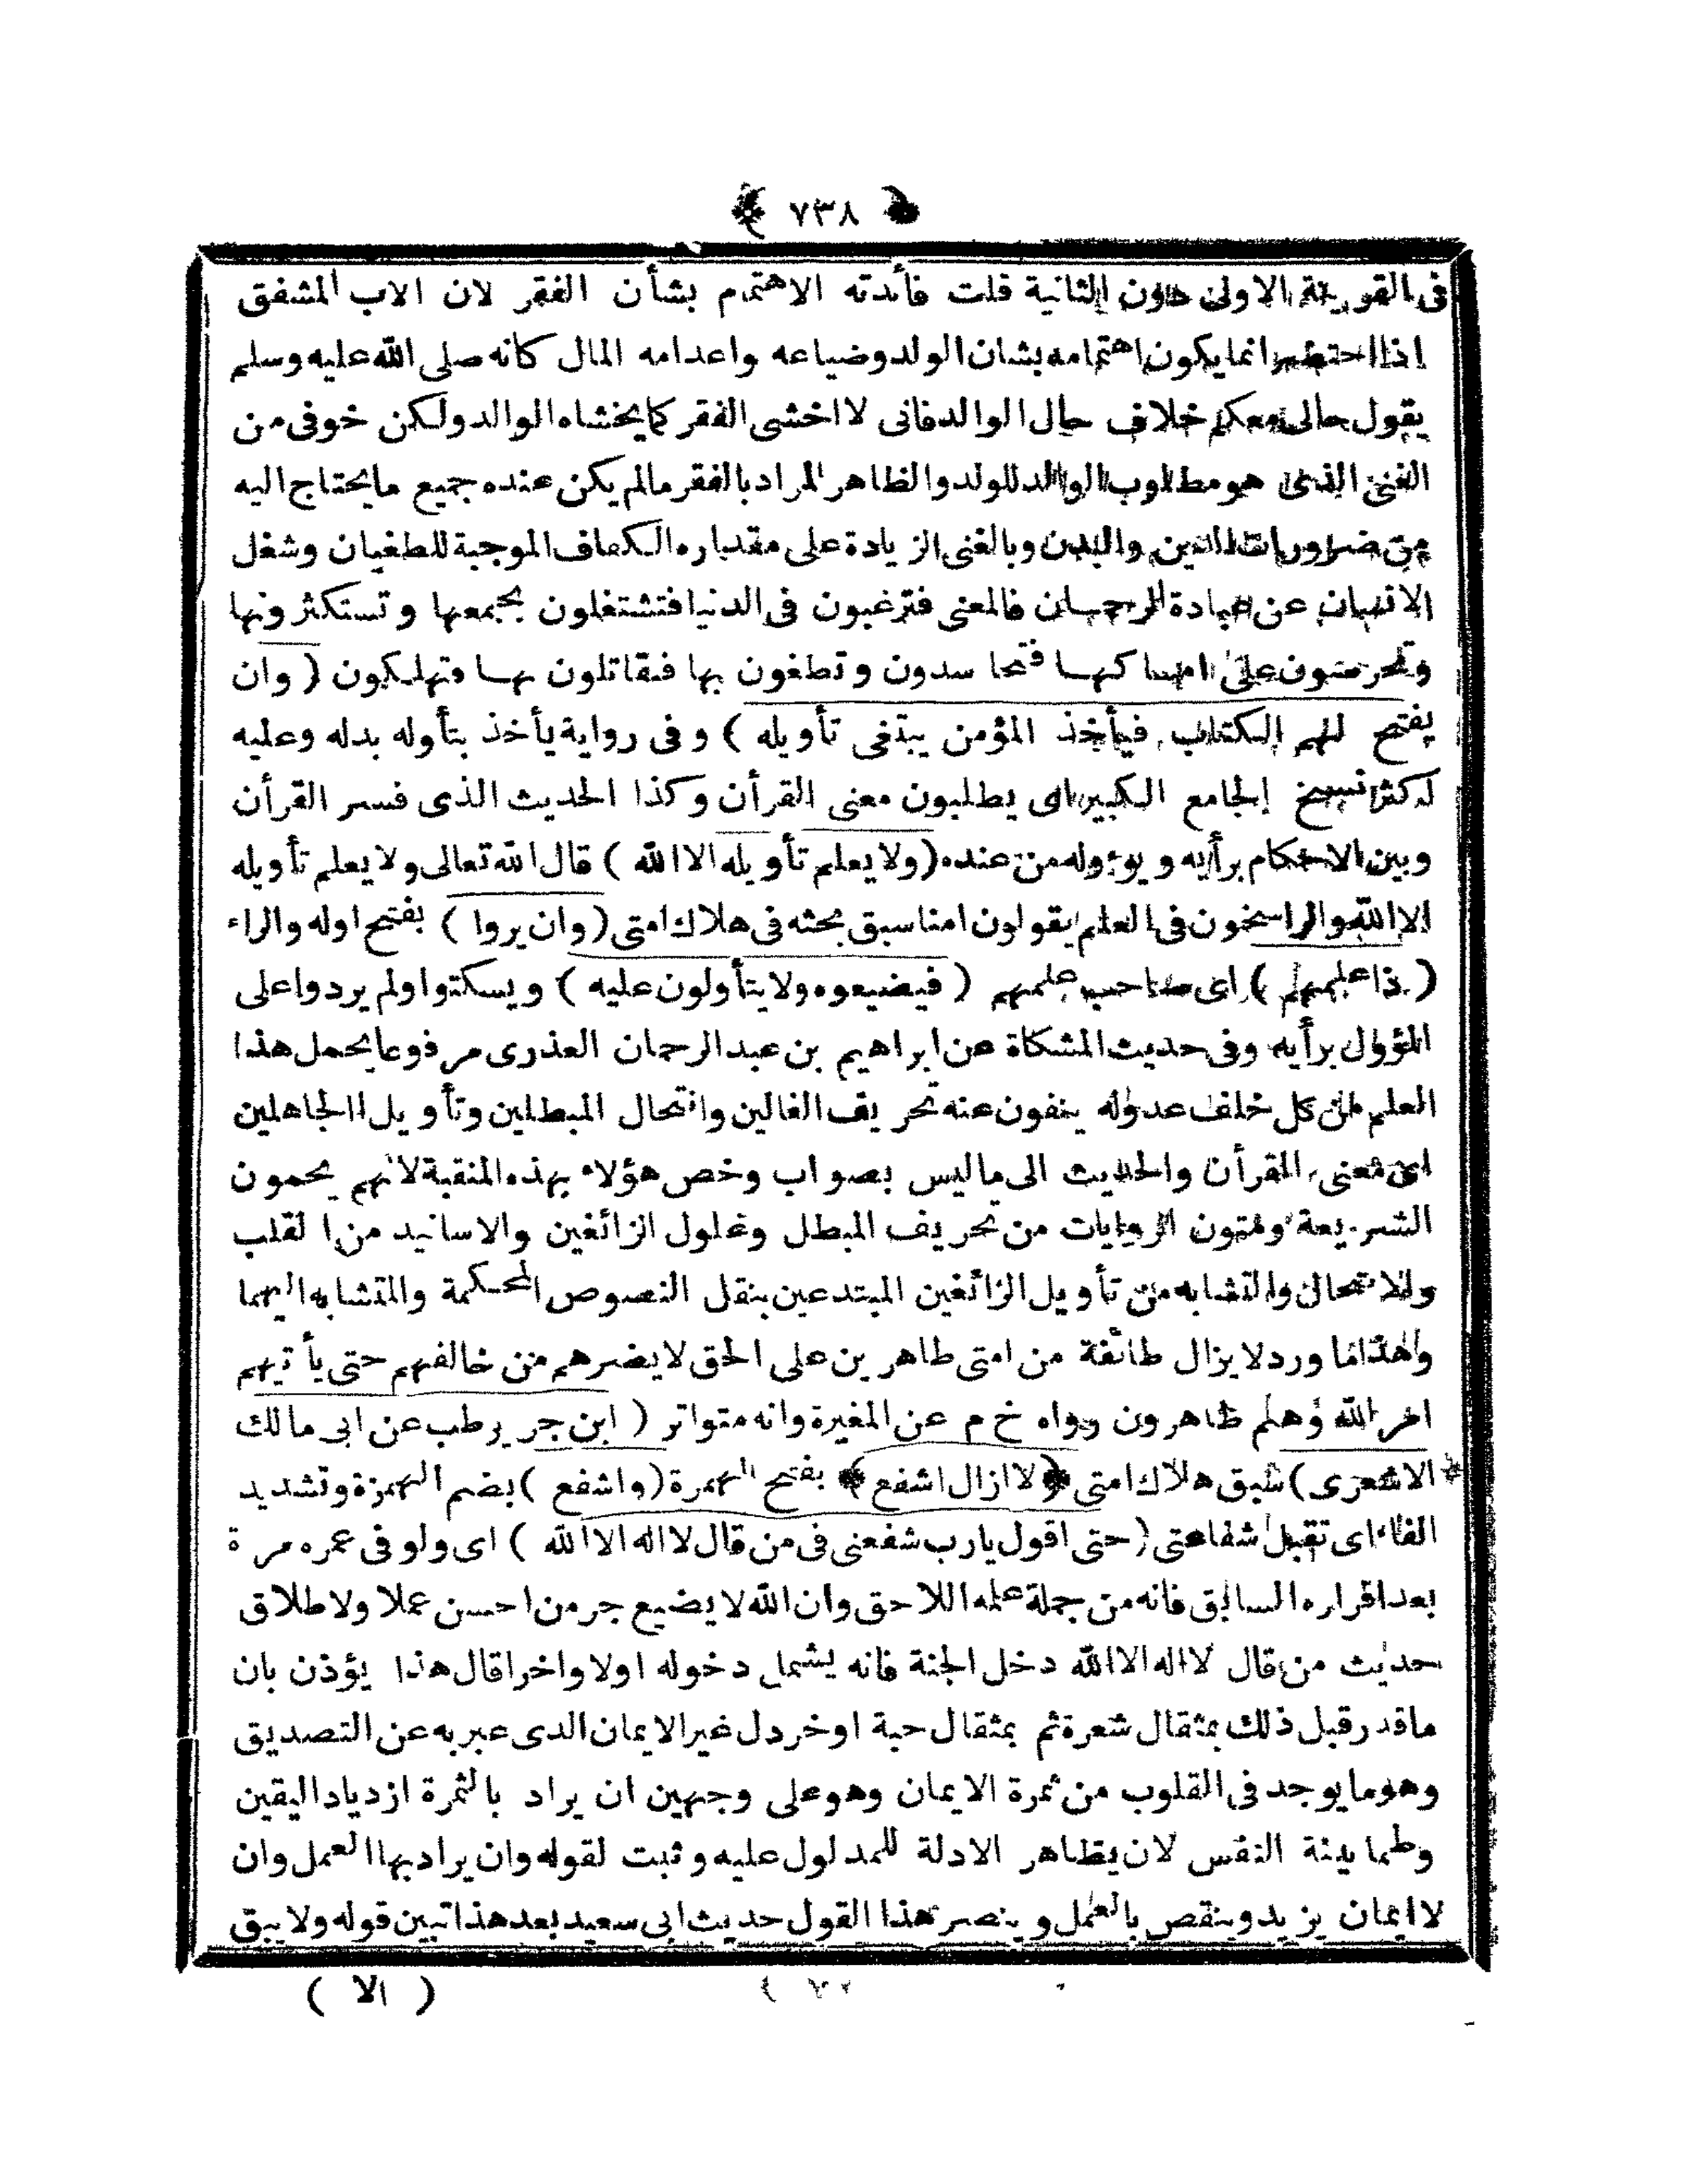 ﴿ ٧٣٨ ﴾
فى القرينة الاولى دون الثانية قلت فأدته الاهتمام بشأن الفقر لان الاب المشفق
اذا احتضر انما يكون اهتمامه بشان الولد وضياعه واعدامه المال كانه صلى الله عليه وسلم
يقول حالى معكم خلاف حال الوالد فانى لا اخشى الفقر كما يخشاه الوالد ولكن خوفى من
الغنى الذى هو مطلوب الوالد للولد والظاهر المراد بالفقر مالم يكن عنده جميع ما يحتاج اليه
من ضرورات الدين والبدن وبالغنى الزيادة على مقداره الكفاف الموجبة للطغيان وشغل
الانسان عن عبادة الرحمان فالمعنى فترغبون فى الدنيا فتشتغلون بجمعها وتستكثرونها
وتحرصون على امساكها فتحاسدون وتطغون بها فتقاتلون بها وتهلكون ( وان
يفتح لهم الكتاب فيأخذ المؤمن يبتغى تأويله ) وفى رواية يأخذ بتأوله بدله وعليه
اكثر نسخ الجامع الكبير اى يطلبون معنى القرأن وكذا الحديث الذى فسر القرأن
وبين الاحكام برأيه ويؤوله من عنده ( ولا يعلم تأويله الا الله ) قال الله تعالى ولا يعلم تأويله
الا الله والراسخون فى العلم يقولون امنا سبق بحثه فى هلاك امتى ( وان يروا ) بفتح اوله والراء
( ذا علمهم ) اى صاحب علمهم ( فيضيعوه ولا يتأولون عليه ) ويسكتوا ولم يردوا على
المؤول برأيه وفى حديث المشكاة عن ابراهيم بن عبد الرحمان العذرى مرفوعا يحمل هذا
العلم من كل خلف عدوله ينفون عنه تحريف الغالين وانتحال المبطلين وتأويل الجاهلين
اى معنى القرأن والحديث الى ما ليس بصواب وخص هؤلاء بهذه المنقبة لانهم يحمون
الشريعة ومتون الروايات من تحريف المبطل وغلول الزائغين والاسانيد من القلب
والانتحال والتشابه من تأويل الزائغين المبتدعين بنقل النصوص المحكمة والمتشابه اليهما
ولهذا ما ورد لا يزال طائفة من امتى ظاهرين على الحق لا يضرهم من خالفهم حتى يأتيهم
امر الله وهم ظاهرون رواه خ م عن المغيرة وانه متواتر ( ابن جرير طب عن ابى مالك
الاشعرى ) سبق هلاك امتى ﴿ لا ازال اشفع ﴾ بفتح الهمزة ( واشفع ) بضم الهمزة وتشديد
الفاء اى تقبل شفاعتى ( حتى اقول يارب شفعنى فى من قال لا اله الا الله ) اى ولو فى عمره مرة
بعد اقراره السابق فانه من جملة عمله اللاحق وان الله لا يضيع جر من احسن عملا ولاطلاق
حديث من قال لا اله الا الله دخل الجنة فانه يشمل دخوله اولا واخرا قال هذا يؤذن بان
ما قدر قبل ذلك بمثقال شعرة ثم بمثقال حبة او خردل غير الايمان الذى عبر به عن التصديق
وهو ما يوجد فى القلوب من ثمرة الايمان وهو على وجهين ان يراد بالثمرة ازدياد اليقين
وطمانينة النفس لان يظاهر الادلة للمدلول عليه وثبت لقوله وان يراد بها العمل وان
لا ايمان يزيد وينقص بالعمل وينصر هذا القول حديث ابى سعيد بعد هذا تبين قوله ولا يبق
( الا )